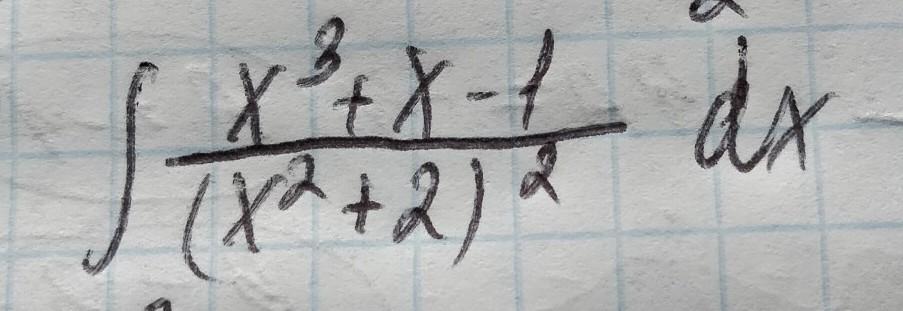 ∫ (x³ + x - 1)/((x² + 2)²) dx